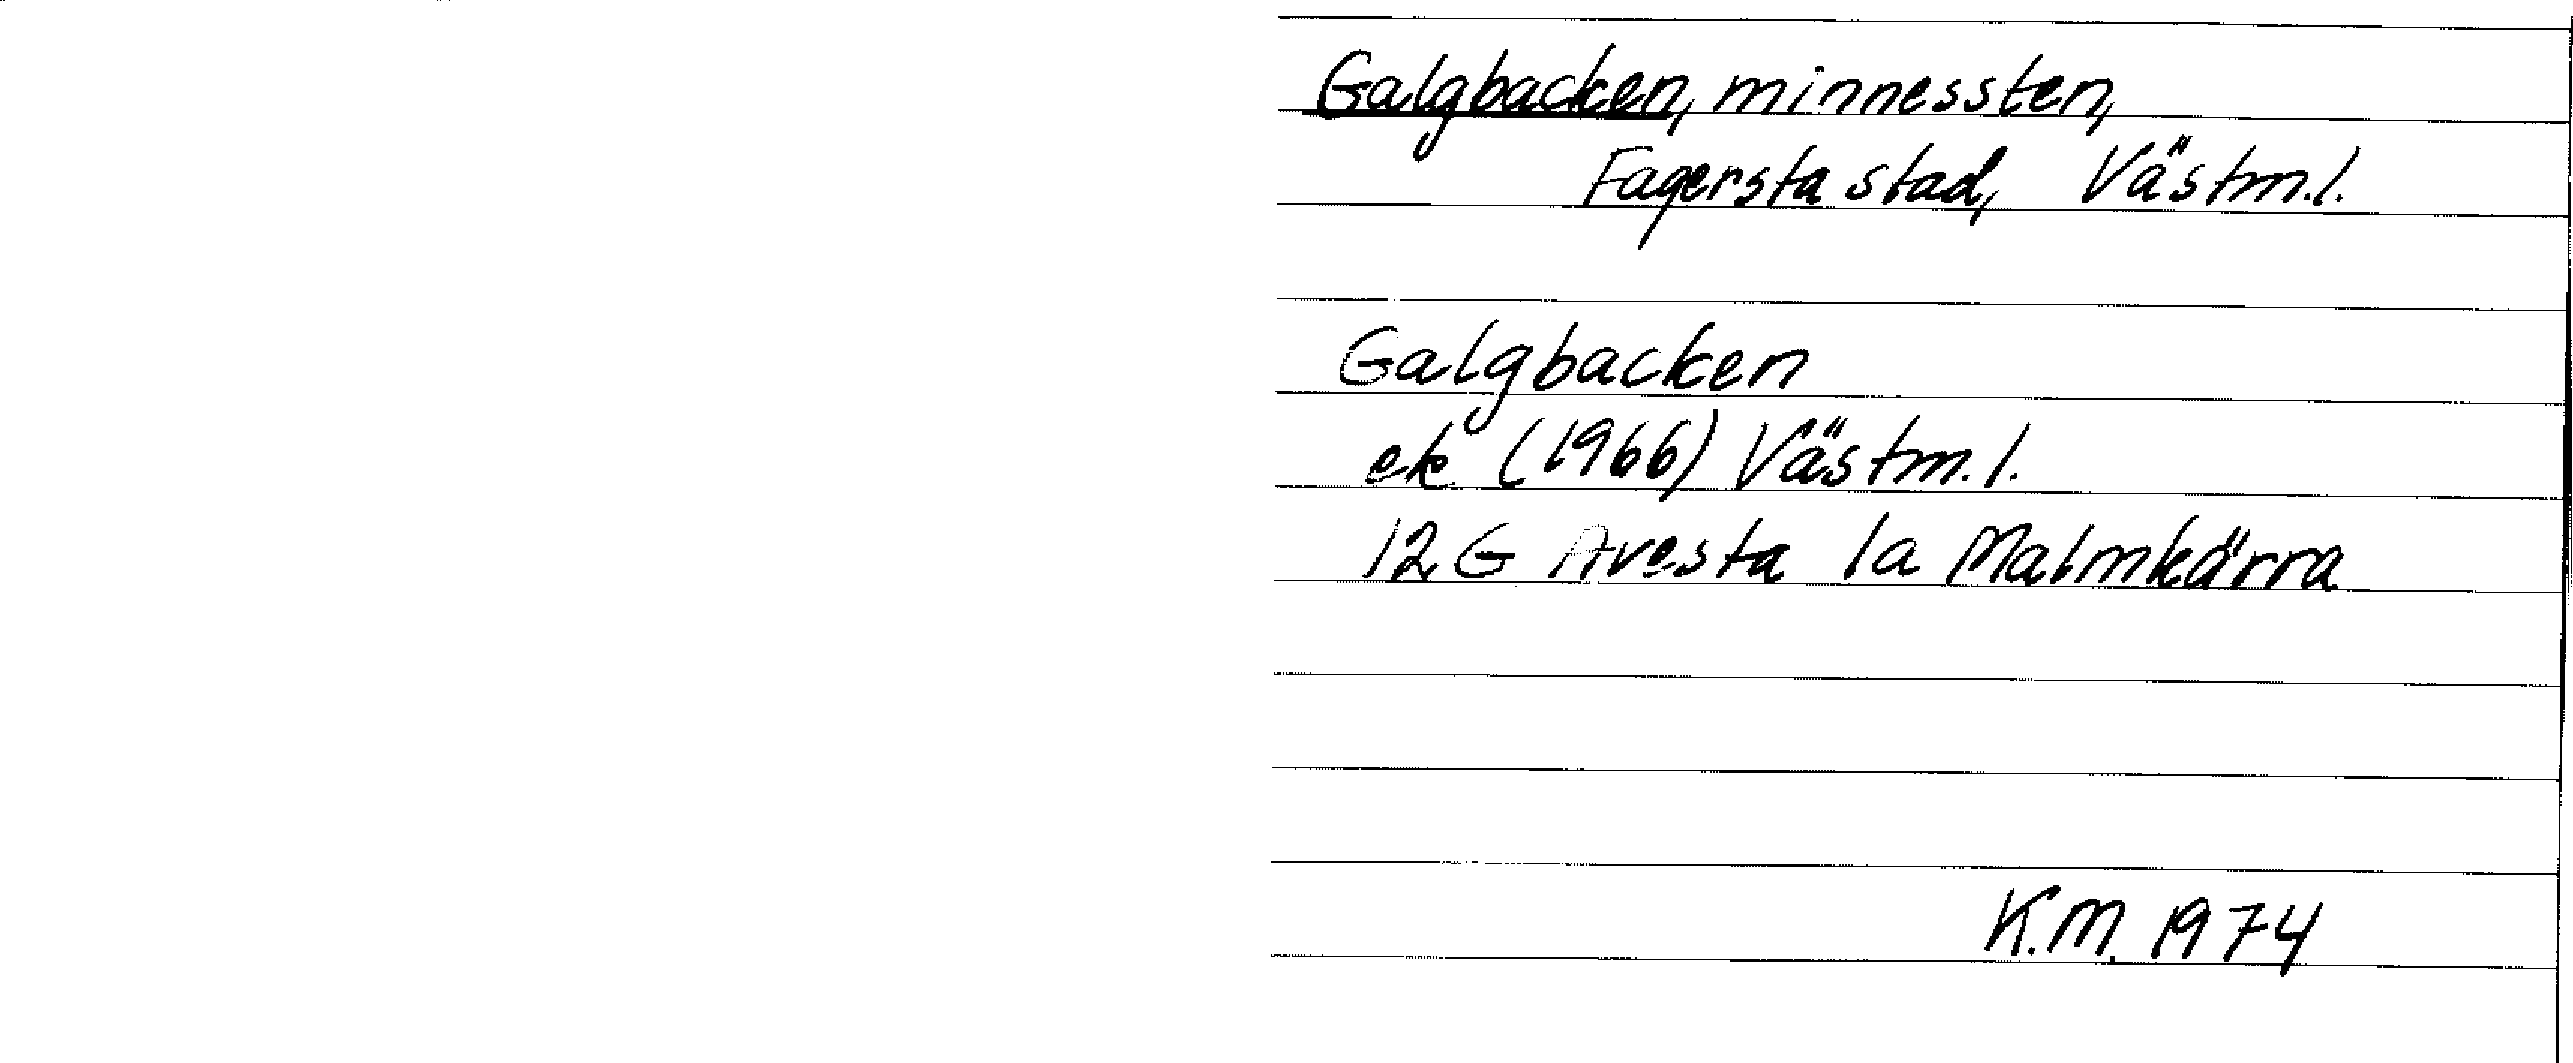 Galgbacken, minnessten,
Fagersta stad, Västm.l.
Galgbacken
ek (1966) Västm.l.
12 G Avesta 1a Malmkärra
K.M. 1974